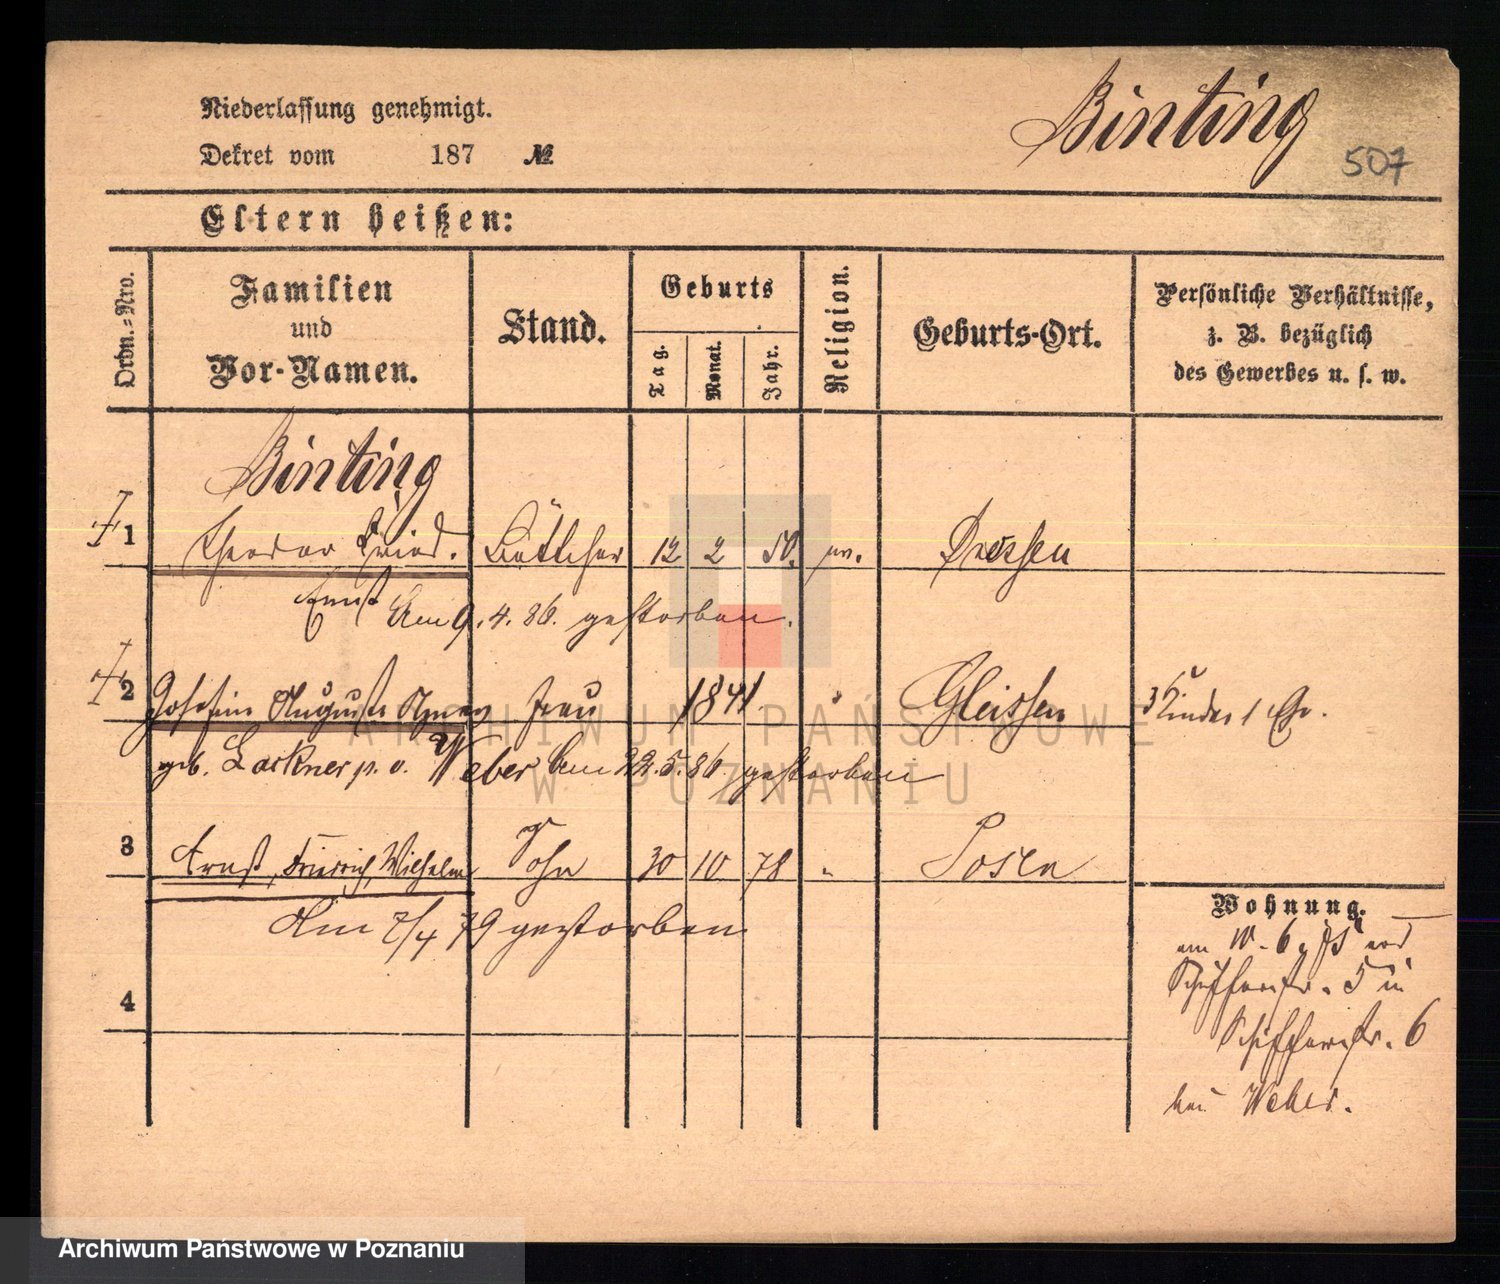 Niederlassung genehmigt.
Dekret vom 187 №
Binting
507
Eltern heißen:
Ordn.-Nro.
Familien
und
Vor-Namen.
Stand.
Geburts
Tag.
Monat.
Jahr.
Religion.
Geburts-Ort.
Persönliche Verhältnisse,
z. B. bezüglich
des Gewerbes u. s. w.
Binting
1 Theodor Fried. Böttcher 12 2 50. ev. Dresden
Ernst Am 9. 4. 86. gestorben.
2 Josefine Auguste Agnes Frau 1841 " Gleissen 3 Kinder 1 Ehe.
geb. Lackner p. v. Weber Am 22. 5. 86. gestorben
3 Ernst, Friedrich, Wilhelm Sohn 30 10 78 " Posen
Am 7/4 79 gestorben
4
Wohnung.
am 10. 6. 75 von
Schifferstr. 5 in
Schifferstr. 6
bei Weber.
ARCHIWUM PAŃSTWOWE
W POZNANIU
Archiwum Państwowe w Poznaniu